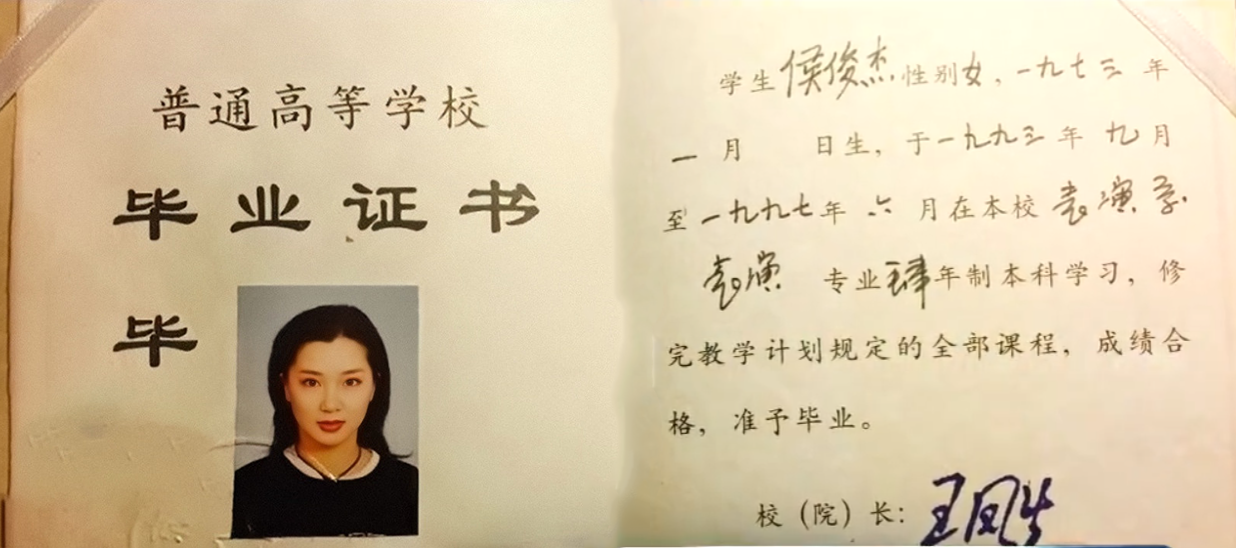 普通高等学校
毕业证书
毕
学生侯俊杰性别女,一九七三年
一月 日生,于一九九三年九月
至一九九七年六月在本校表演系
表演 专业肆年制本科学习,修
完教学计划规定的全部课程,成绩合
格,准予毕业。
校(院)长:王凤生